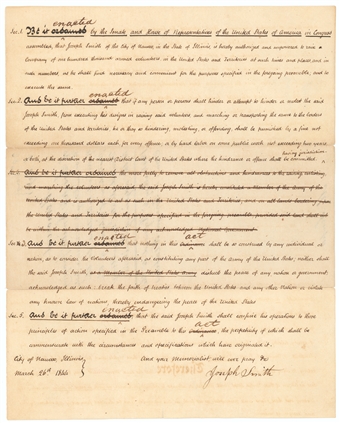 enacted
Sec. 1. Be it ordained by the Senate and House of Representatives of the United States of America in Congress
assembled, that Joseph Smith of the City of Nauvoo, in the State of Illinois, is hereby authorized and empowered to raise a
Company of one hundred thousand armed volunteers in the United States and Territories at such times and places and in
such numbers as he shall find necessary and convenient for the purposes specified in the foregoing preamble, and to
execute the same.
enacted
Sec. 2. And be it further ordained that if any person or persons shall hinder or attempt to hinder or molest the said
Joseph Smith from executing his designs in raising said volunteers and marching or transporting the same to the borders
of the United States and territories he or they so hindering, molesting, or offending, shall be punished by a fine not
exceeding one thousand dollars each for every offence, or by hard labor on some public work not exceeding two years
having jurisdiction
or both, at the discretion of the nearest District Court of the United States where the hindrance or offence shall be committed
And be it further ordained
the United States and Territories for the purposes specified in the foregoing preamble, provided said land shall lie
enacted act
And be it further ordained that nothing in this shall be so construed by any individual or
nation, as to consider the volunteers aforesaid as constituting any part of the Army of the United States, neither shall
the said Joseph Smith, as a Member of the United States Army disturb the peace of any nation or government
acknowledged as such: break the faith of treaties between the United States and any other Nation or violate
any known law of nations, thereby endangering the peace of the United States
enacted
And be it further ordained that the said Joseph Smith shall confine his operations to those
act
principles of action specified in the Preamble to this the perpetuity of which shall be
commensurate with the circumstances and specifications which have originated it.
City of Nauvoo, Illinois, And your Memorialist will ever pray &c
March 26th 1844 Joseph Smith